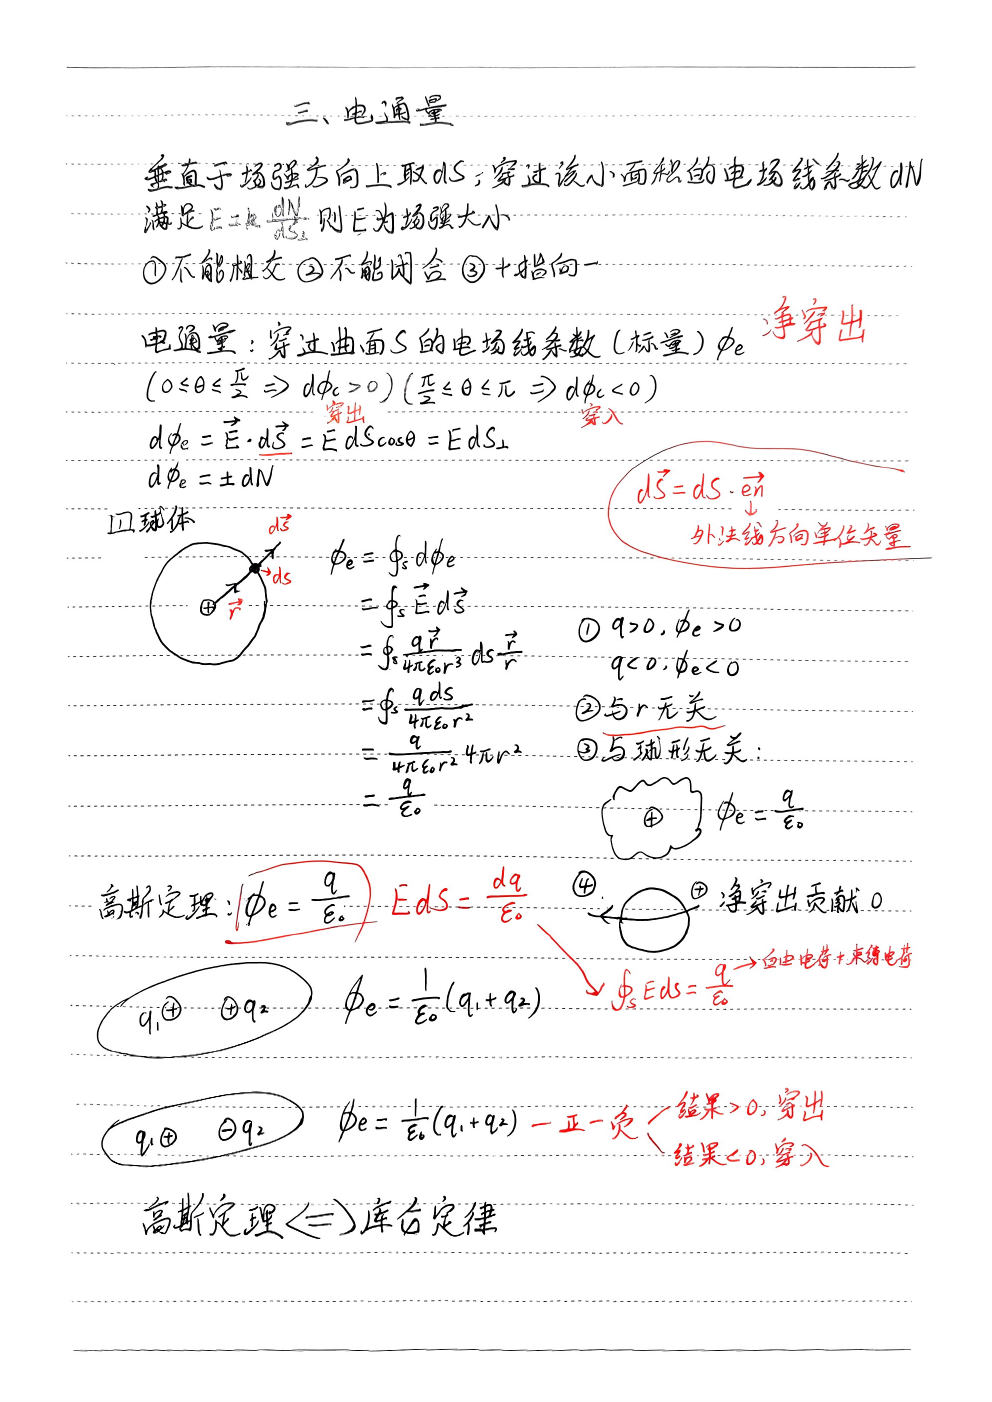 三、电通量
垂直于场强方向上取dS,穿过该小面积的电场线条数dN
满足E=k dN/dS⊥ 则E为场强大小
①不能相交 ②不能闭合 ③+指向-
电通量:穿过曲面S的电场线条数(标量)ϕe 净穿出
(0≤θ≤π/2 => dϕe>0)(π/2≤θ≤π => dϕe<0)
穿出 穿入
dϕe = E⃗·dS⃗ = EdScosθ = EdS⊥
dϕe = ±dN
dS⃗ = dS·en⃗
↓
外法线方向单位矢量
[1]球体
dS⃗
→ds
r⃗
ϕe = ∮s dϕe
= ∮s E⃗ dS⃗
= ∮s qr⃗/4πε₀r³ ds r⃗/r
= ∮s qds/4πε₀r²
= q/4πε₀r² 4πr²
= q/ε₀
① q>0,ϕe>0
q<0,ϕe<0
②与r无关
③与球形无关:
⊕ ϕe = q/ε₀
④ ⊕ 净穿出贡献0
高斯定理: ϕe = q/ε₀ EdS = dq/ε₀
∮s Eds = q/ε₀ → 自由电荷+束缚电荷
q₁⊕ ⊕q₂ ϕe = 1/ε₀(q₁+q₂)
q₁⊕ ⊖q₂ ϕe = 1/ε₀(q₁+q₂) 一正一负
结果>0,穿出
结果<0,穿入
高斯定理<=>库仑定律